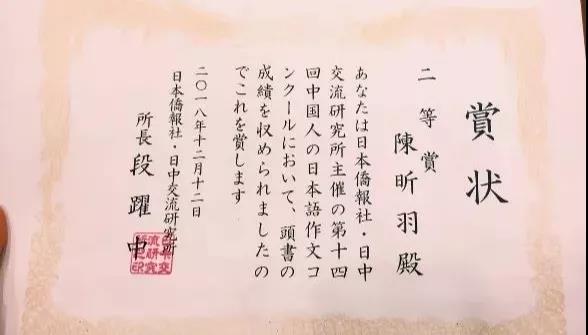 賞状
二等賞
陳昕羽殿
あなたは日本僑報社・日中
交流研究所主催の第十四
回中国人の日本語作文コ
ンクールにおいて、頭書の
成績を収められましたの
でこれを賞します
二〇一八年十二月十二日
日本僑報社・日中交流研究所
所長 段躍中